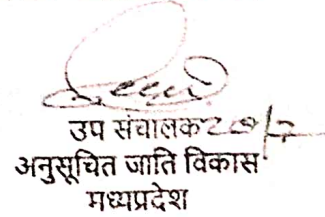 उप संचालक
अनुसूचित जाति विकास
मध्यप्रदेश